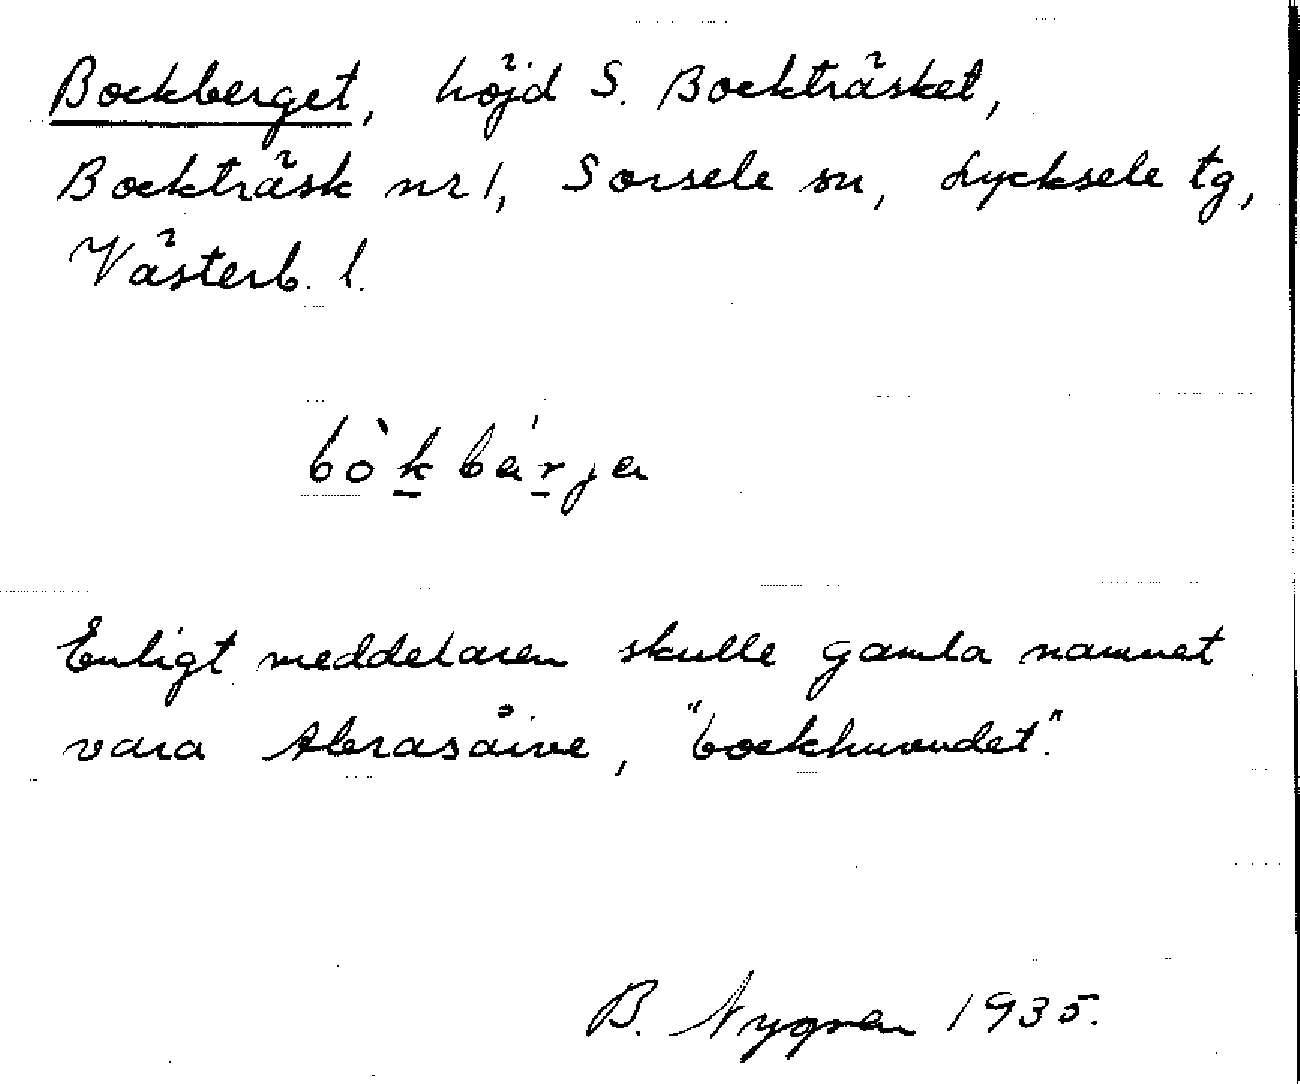 Bockberget, höjd S. Bockträsket,
Bockträsk nr 1, Sorsele sn, Lycksele tg,
Västerb. l.
bò̀k bá̀rja
Enligt meddelaren skulle gamla namnet
vara Abrasåive, "bockhuvudet".
B. Nygren 1935.